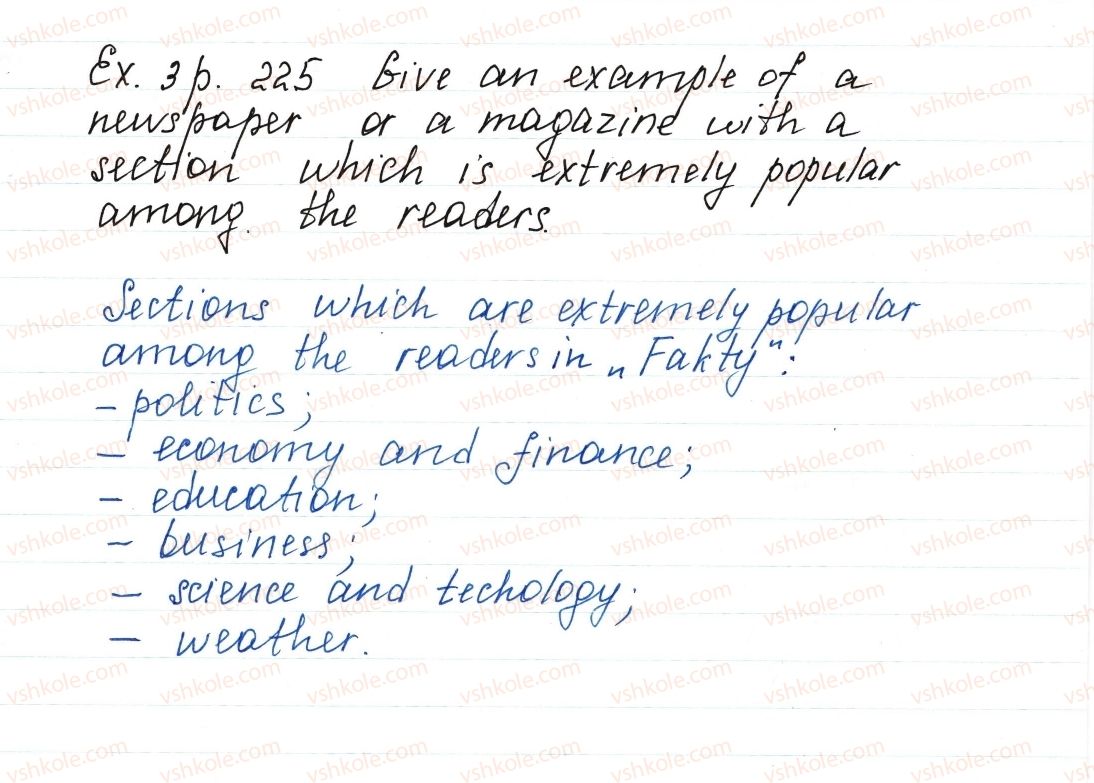 Ex. 3 p. 225 Give an example of a
newspaper or a magazine with a
section which is extremely popular
among the readers.
Sections which are extremely popular
among the readers in „Fakty":
– politics;
– economy and finance;
– education;
– business;
– science and techology;
– weather.
vshkole.com